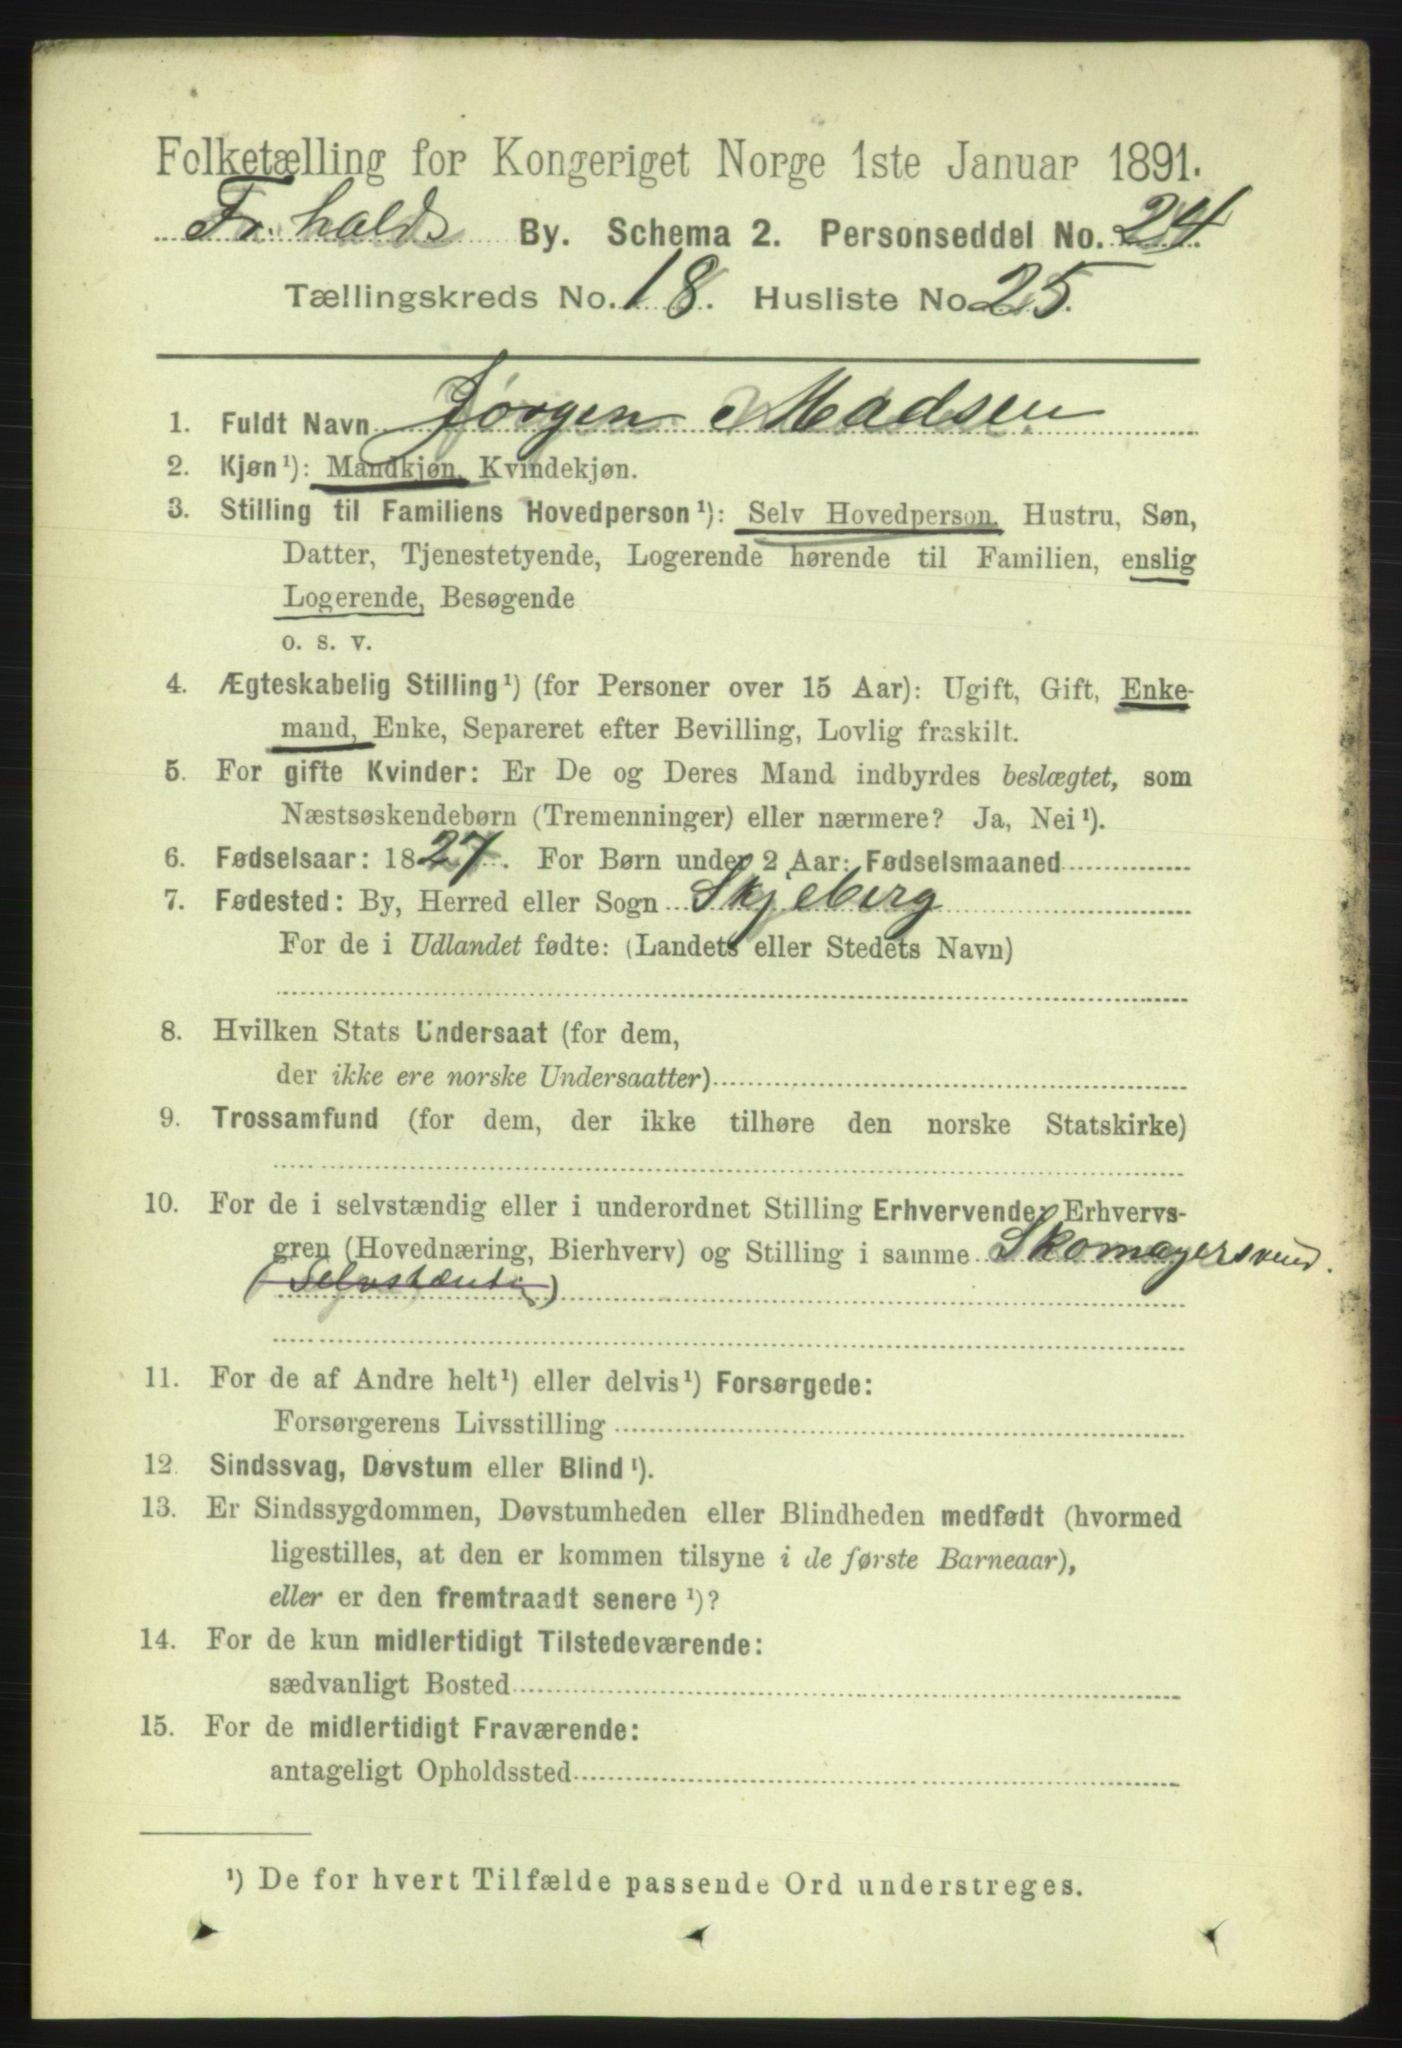 Folketælling for Kongeriget Norge 1ste Januar 1891.
Fr.halds By. Schema 2. Personseddel No. 24.
Tællingskreds No. 18. Husliste No 25.
1. Fuldt Navn Jørgen Madsen
2. Kjøn¹): Mandkjøn, Kvindekjøn.
3. Stilling til Familiens Hovedperson¹): Selv Hovedperson, Hustru, Søn,
Datter, Tjenestetyende, Logerende hørende til Familien, enslig
Logerende, Besøgende
o. s. v.
4. Ægteskabelig Stilling¹) (for Personer over 15 Aar): Ugift, Gift, Enke-
mand, Enke, Separeret efter Bevilling, Lovlig fraskilt.
5. For gifte Kvinder: Er De og Deres Mand indbyrdes beslægtet, som
Næstsøskendebørn (Tremenninger) eller nærmere? Ja, Nei¹).
6. Fødselsaar: 1827. For Børn under 2 Aar: Fødselsmaaned
7. Fødested: By, Herred eller Sogn Skjeberg
For de i Udlandet fødte: (Landets eller Stedets Navn)
8. Hvilken Stats Undersaat (for dem,
der ikke ere norske Undersaatter)
9. Trossamfund (for dem, der ikke tilhøre den norske Statskirke)
10. For de i selvstændig eller i underordnet Stilling Erhvervende: Erhvervs-
gren (Hovednæring, Bierhverv) og Stilling i samme Skomagersvend.
11. For de af Andre helt¹) eller delvis¹) Forsørgede:
Forsørgerens Livsstilling
12. Sindssvag, Døvstum eller Blind¹).
13. Er Sindssygdommen, Døvstumheden eller Blindheden medfødt (hvormed
ligestilles, at den er kommen tilsyne i de første Barneaar),
eller er den fremtraadt senere¹)?
14. For de kun midlertidigt Tilstedeværende:
sædvanligt Bosted
15. For de midlertidigt Fraværende:
antageligt Opholdssted
¹) De for hvert Tilfælde passende Ord understreges.